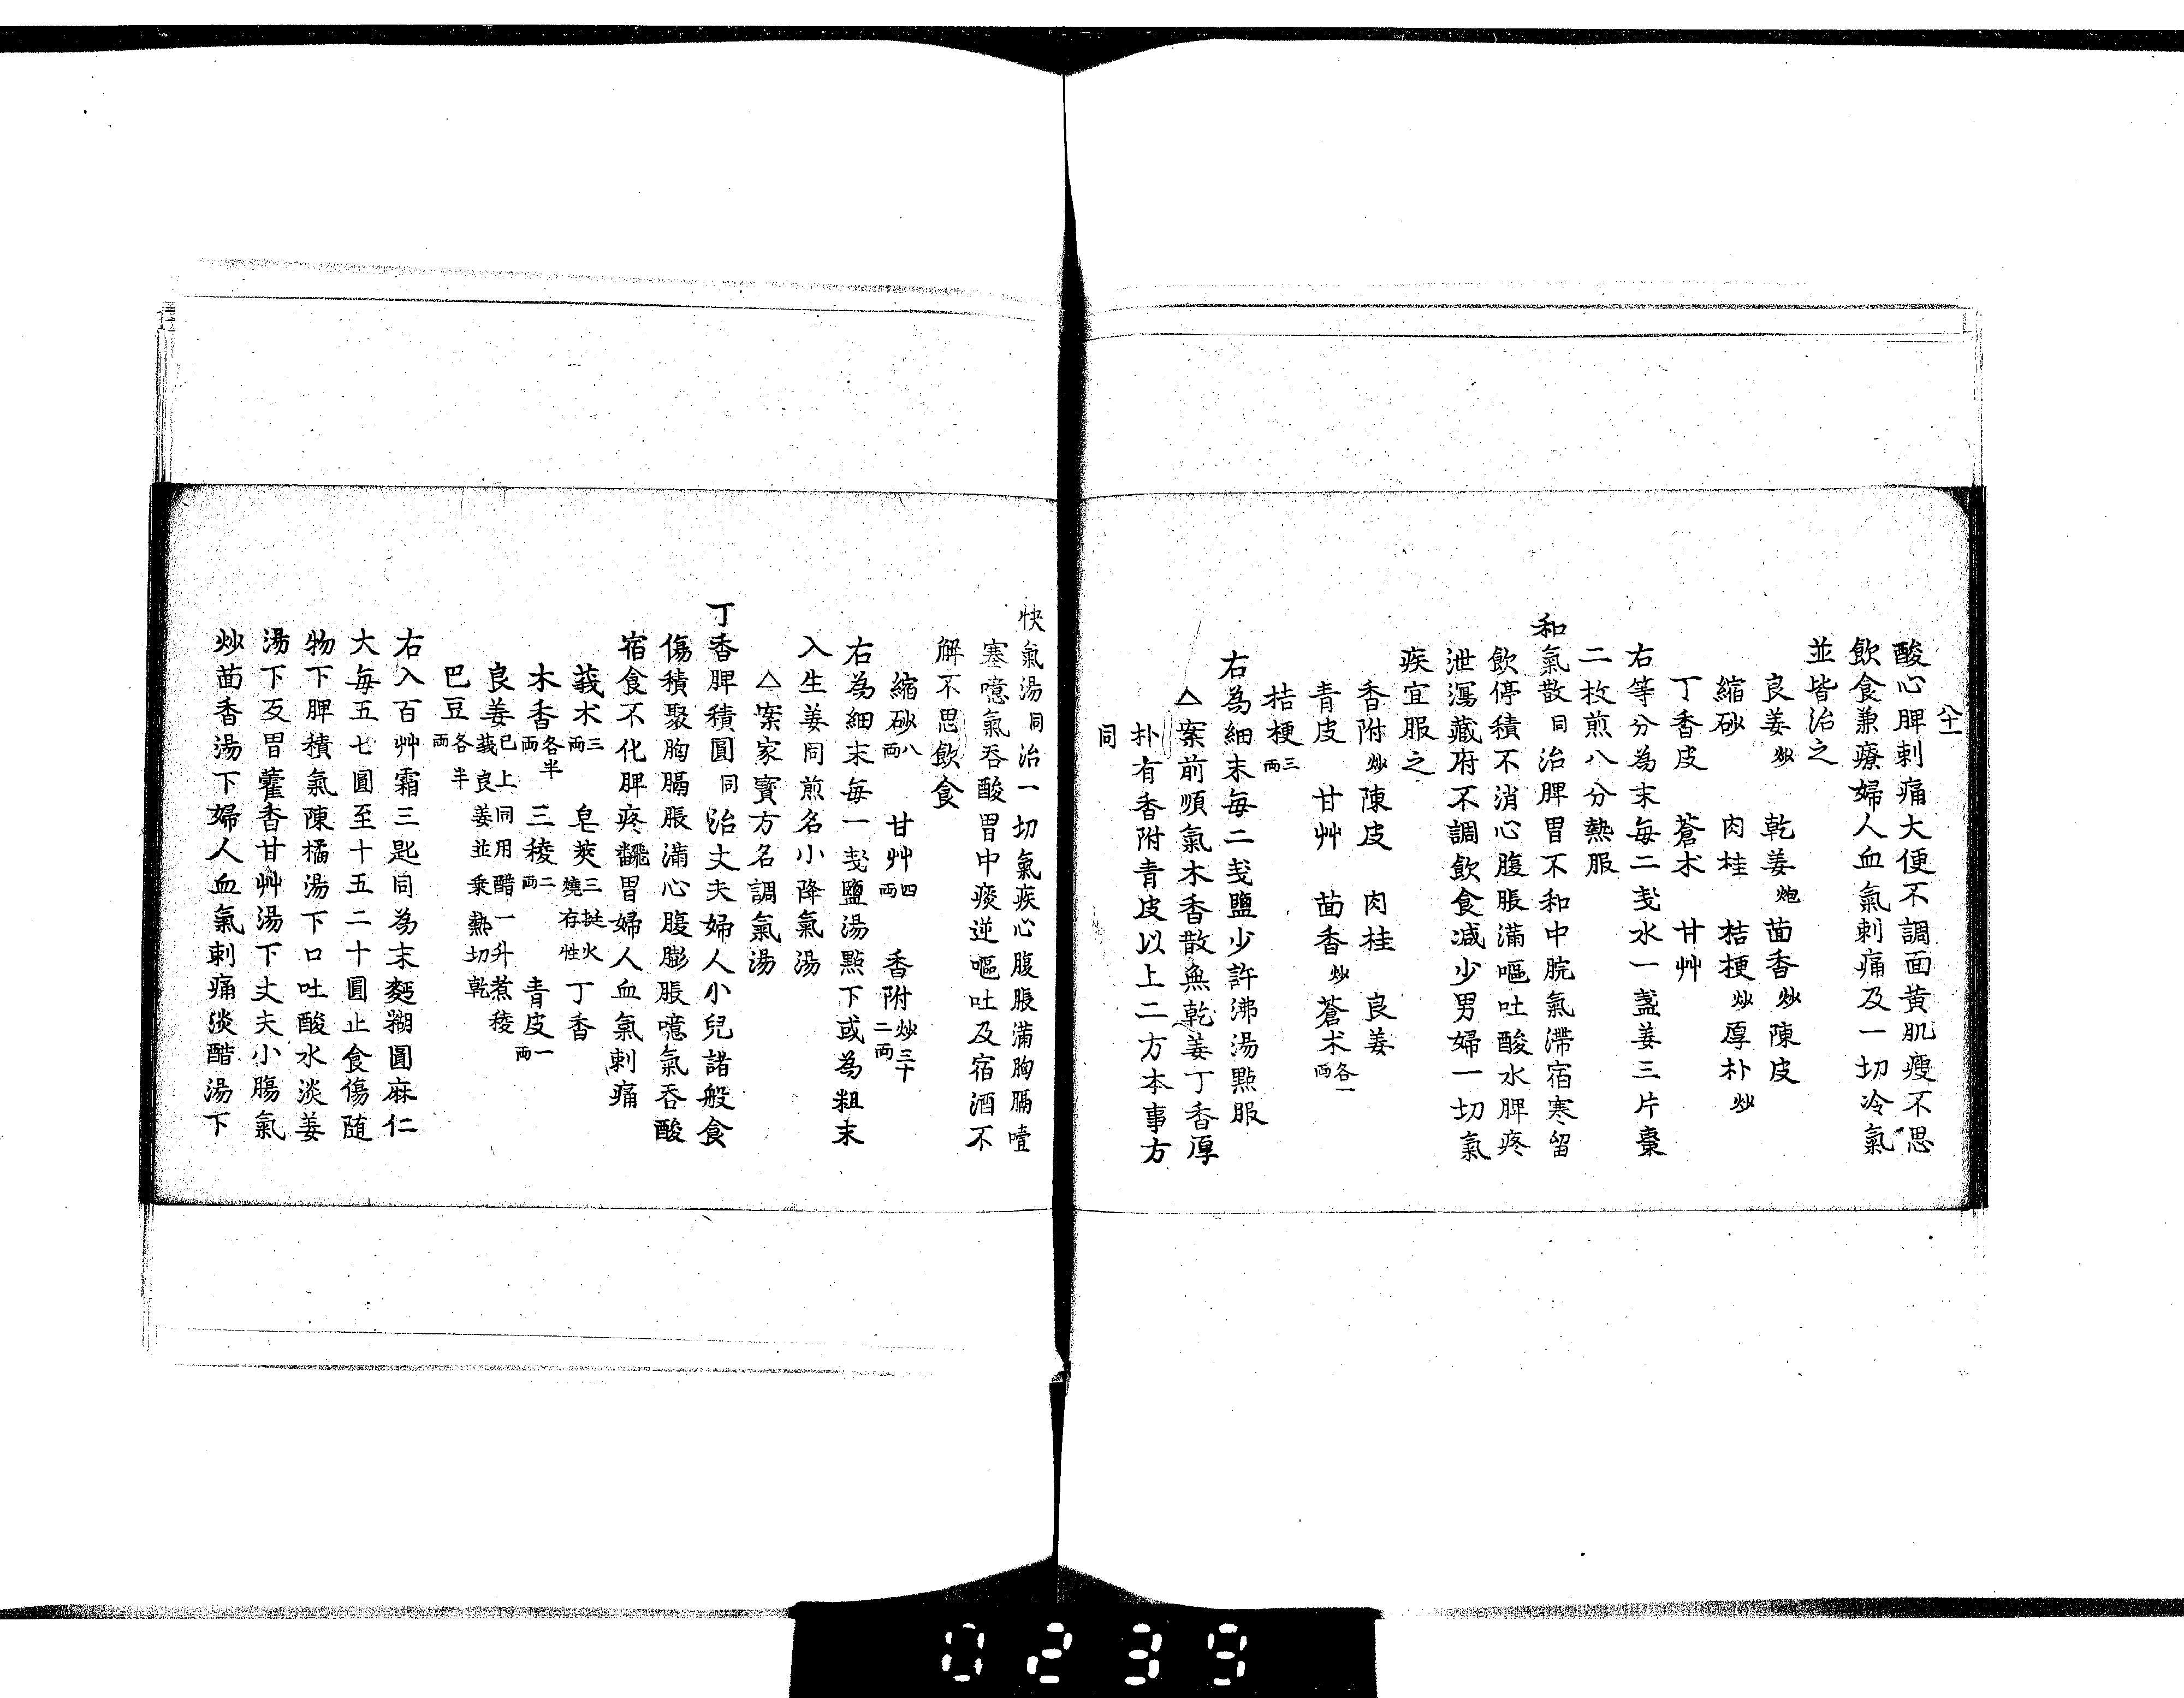 酸心脾刺痛大便不調面黃肌瘦不思
飲食兼療婦人血氣刺痛及一切冷氣
並皆治之
良姜炒 乾姜炮 茴香炒 陳皮
縮砂 肉桂 桔梗炒 厚朴炒
丁香皮 蒼朮 甘艸
右等分為末每二戔水一盞姜三片棗
二枚煎八分熱服
和氣散同治脾胃不和中脘氣滯宿寒留
飲停積不消心腹脹滿嘔吐酸水脾疼
泄瀉藏府不調飲食減少男婦一切氣
疾宜服之
香附炒 陳皮 肉桂 良姜
青皮 甘艸 茴香炒 蒼朮各一両
桔梗三両
右為細末每二戔鹽少許沸湯點服
△案前順氣木香散無乾姜丁香厚
朴有香附青皮以上二方本事方
同
快氣湯同治一切氣疾心腹脹滿胸膈噎
塞噫氣吞酸胃中痰逆嘔吐及宿酒不
解不思飲食
縮砂八両 甘艸四両 香附炒三十二両
右為細末每一戔鹽湯點下或為粗末
入生姜同煎名小降氣湯
△案家寶方名調氣湯
丁香脾積圓同治丈夫婦人小兒諸般食
傷積聚胸膈脹滿心腹膨脹噫氣吞酸
宿食不化脾疼飜胃婦人血氣刺痛
莪朮三両 皂莢三挺火燒存性 丁香
木香各半両 三稜二両 青皮一両
良姜已上同用醋一升煮稜莪良姜並乘熱切乾
巴豆各半両
右入百艸霜三匙同為末麪糊圓麻仁
大每五七圓至十五二十圓止食傷隨
物下脾積氣陳橘湯下口吐酸水淡姜
湯下反胃藿香甘艸湯下丈夫小腸氣
炒茴香湯下婦人血氣刺痛淡醋湯下
0239